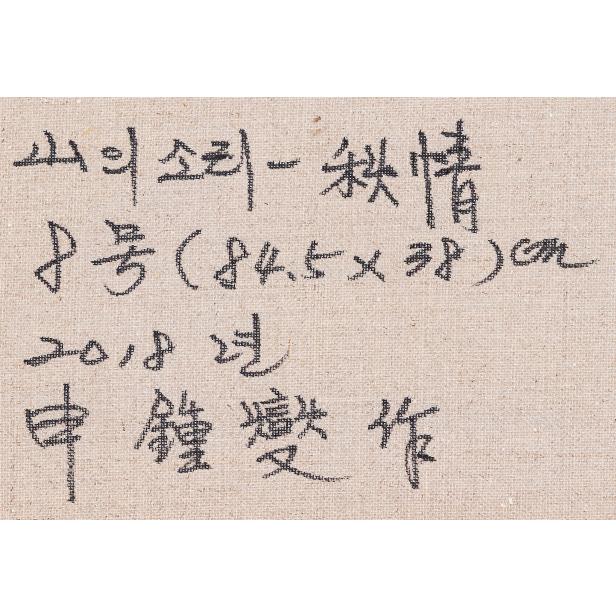 山의 소리 - 秋情
8号 (84.5 x 38) cm
2018 년
申 鍾 燮 作